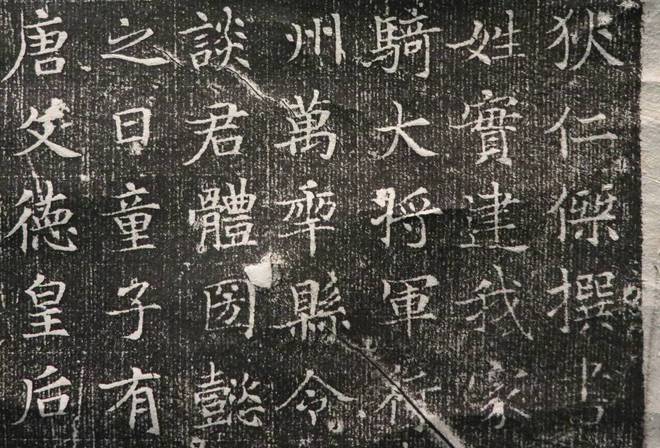 狄仁傑撰書
姓實建我家
騎大将軍行
州萬縣令
談君體圀懿
之日童子有
唐文徳皇后